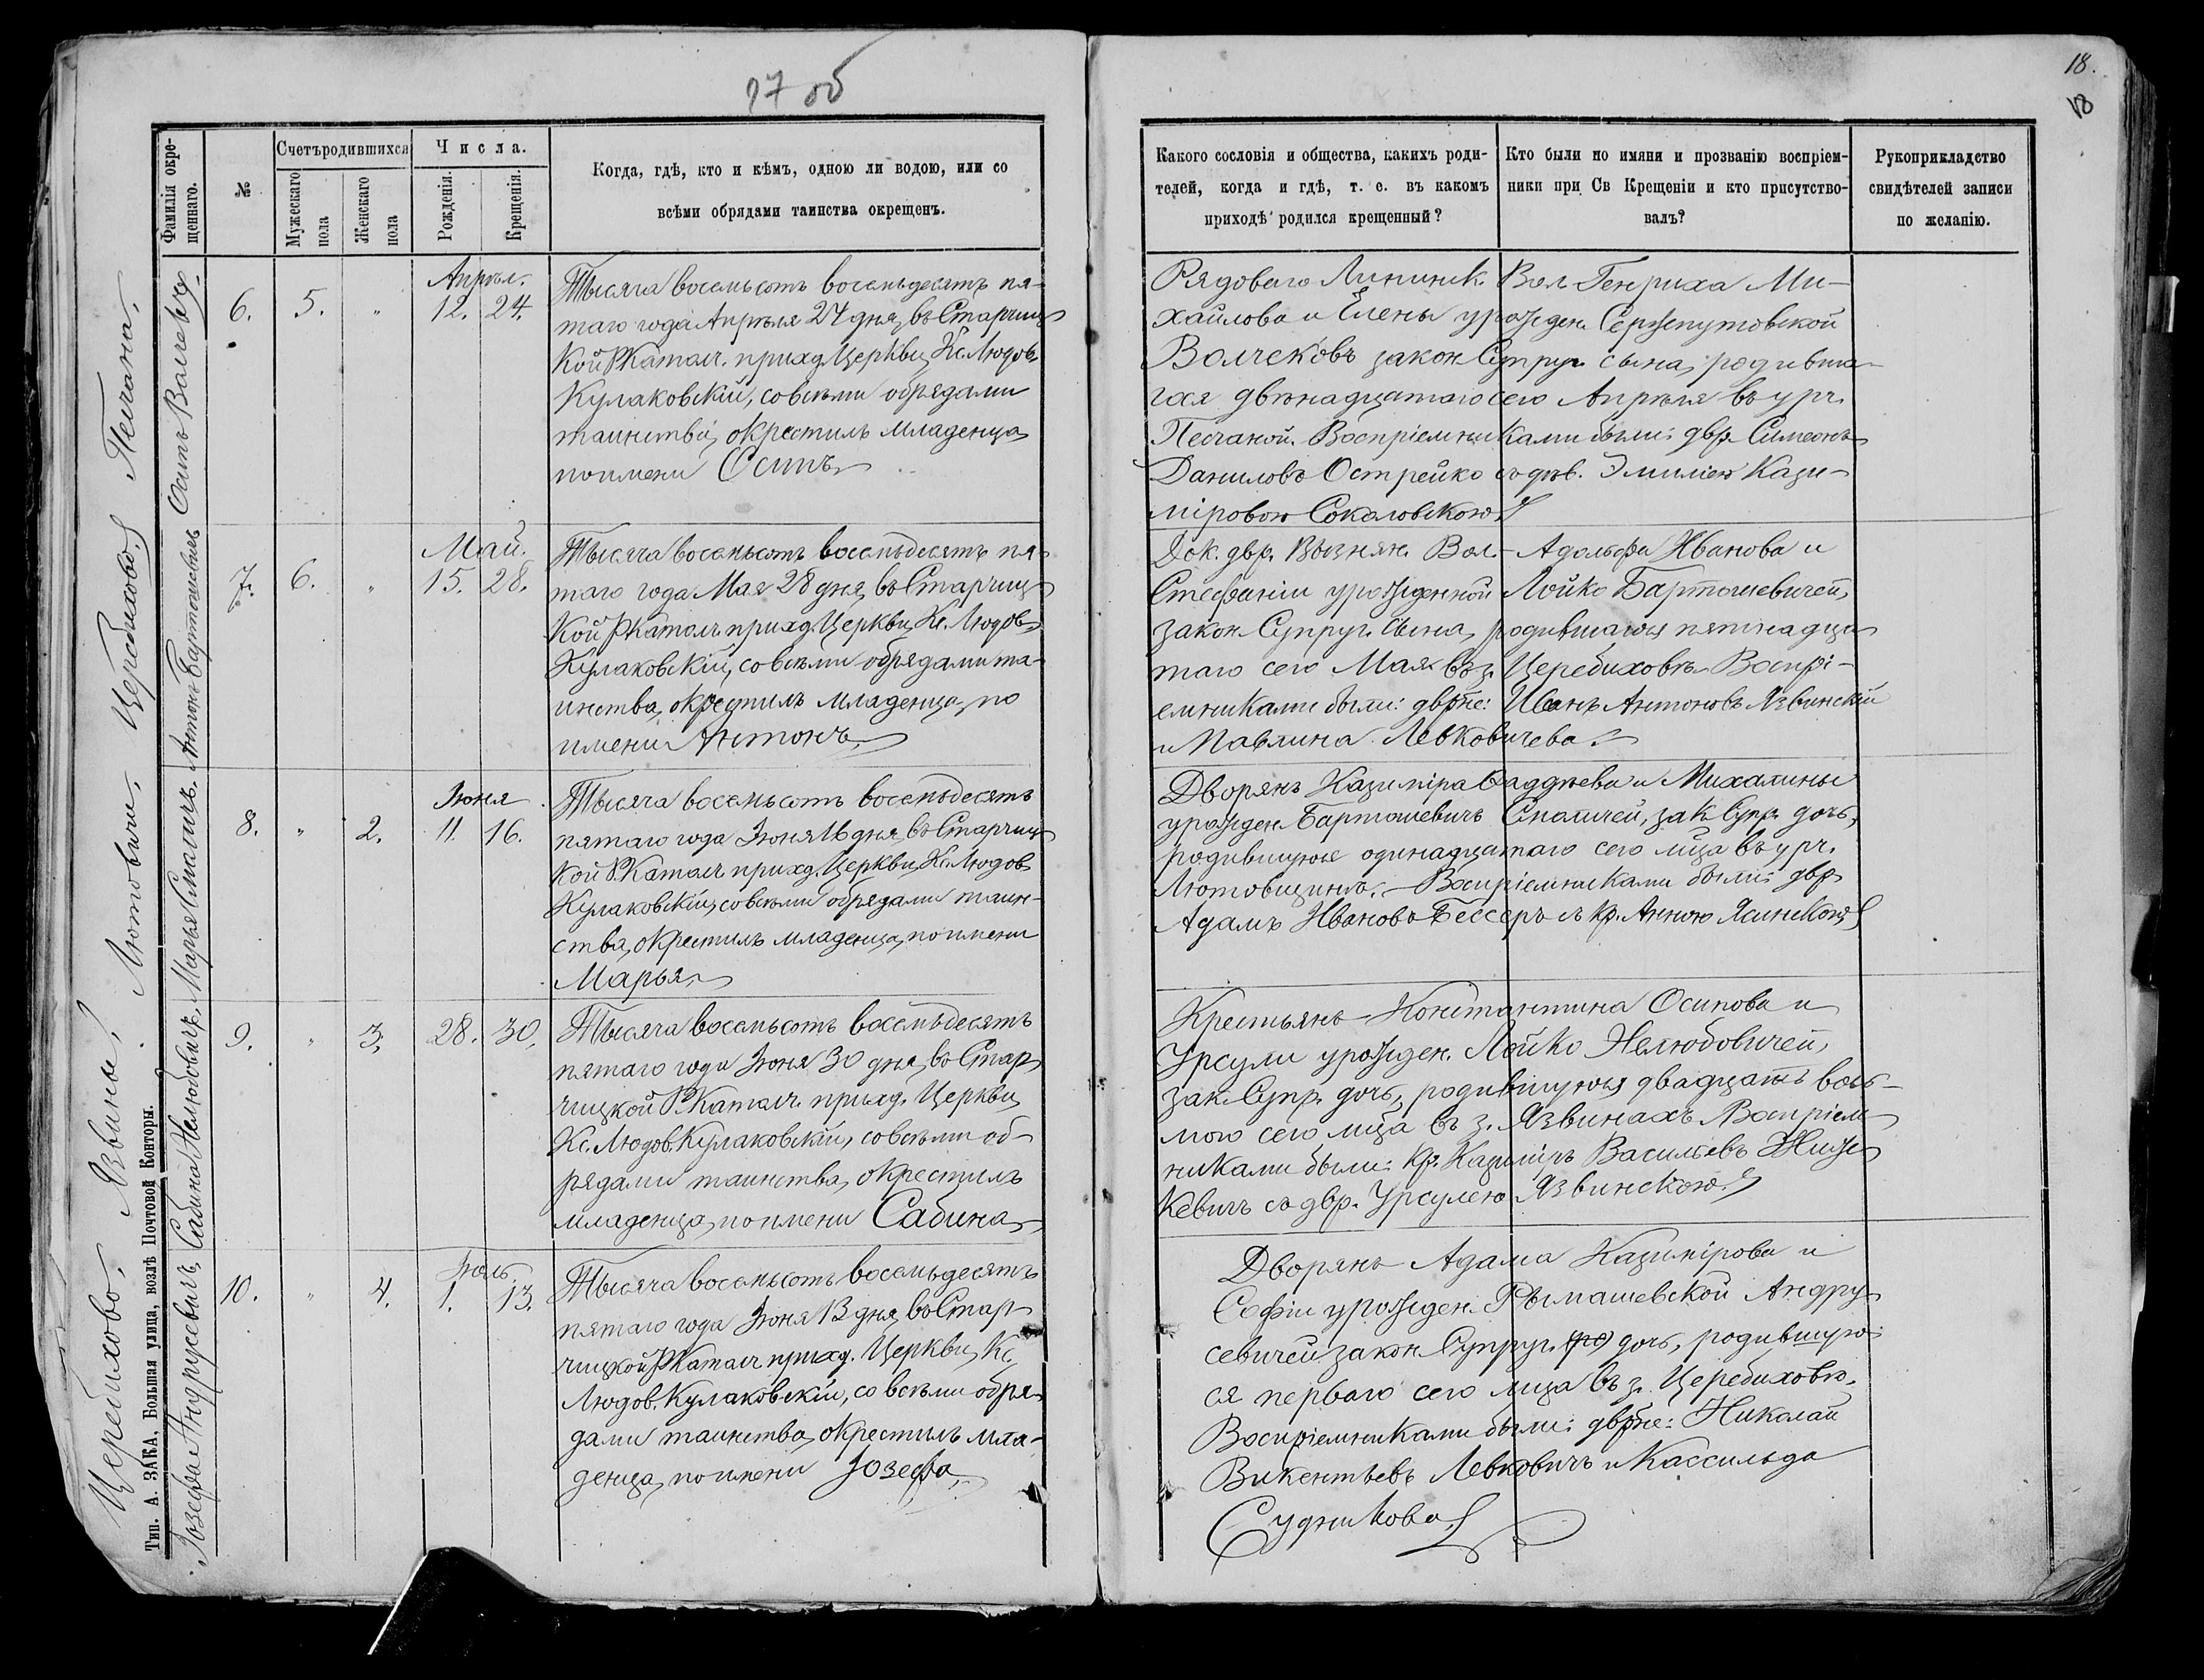 17 об
18.
18
Фамилія окре-
щеннаго.
№
Счетъ родившихся
Мужескаго
пола
Женскаго
пола
Числа.
Рожденія.
Крещенія.
Когда, гдѣ, кто и кѣмъ, одною ли водою, или со
всѣми обрядами таинства окрещенъ.
Какого сословія и общества, какихъ роди-
телей, когда и гдѣ, т. е. въ какомъ
приходѣ родился крещенный?
Кто были по имяни и прозванію воспріем-
ники при Св Крещеніи и кто присутство-
валъ?
Рукоприкладство
свидѣтелей записи
по желанію.
Песчана.
Осипъ Волчекъ.
6. 5. " Апрѣл. 12. 24.
Тысяча восемьсотъ восемьдесятъ пя-
таго года Апрѣля 24 дня, въ Старчиц-
кой Р Катол. приход. Церкви, Кс. Людов.
Кулаковскій, со всѣми обрядами
таинства, окрестилъ младенца,
по имени Осипъ.
Рядоваго Линник. Вол. Генриха Ми-
хайлова и Елены урожден. Сержпутовской
Волчековъ закон. Супруг. сына, родивша-
гося двѣнадцатаго сего Апрѣля въ урч.
Песчаной. Воспріемниками были: двр. Симеонъ
Даниловъ Острейко съ дѣв. Эмиліею Кази-
міровою Соколовскою.
Церебихово.
Антонъ Бартошевичъ
7. 6. " Май. 15. 28.
Тысяча восемьсотъ восемьдесятъ пя-
таго года Мая 28 дня, въ Старчиц-
кой РКатол. приход. Церкви, Кс. Людов.
Кулаковскій, со всѣми обрядами та-
инства, окрестилъ младенца, по
имени Антонъ.
Док. двр. Вызнян. Вол. Адольфа Иванова и
Стефаніи урожденной Лойко Бартошевичей,
закон. Супруг. сына, родившагося пятнадца-
таго сего Мая въ з. Церебиховѣ. Воспрі-
емниками были: дврне: Иванъ Антоновъ Язвинскій
и Павлина Левковичева.
Лютовичи,
Марья Спатичъ.
8. " 2. Іюня 11. 16.
Тысяча восемьсотъ восемьдесятъ
пятаго года Іюня 16 дня, въ Старчиц-
кой Р.Катол. приход. Церкви, Кс. Людов.
Кулаковскій, со всѣми обрядами таин-
ства, окрестилъ младенца, по имени
Марья.
Дворянъ Казиміра Фаддѣева и Михалины
урожден. Бартошевичъ Спатичей, зак. Супр. дочь,
родившуюся одинадцатаго сего мца въ урч.
Лютовщинѣ. Воспріемниками были: двр.
Адамъ Ивановъ Бессеръ съ кр. Анною Ясинскою.
Язвины,
Сабина Нелюбовичъ,
9. " 3. 28. 30.
Тысяча восемьсотъ восемьдесятъ
пятаго года Іюня 30 дня, въ Стар-
чицкой РКатол. приход. Церкви,
Кс. Людов. Кулаковскій, со всѣми об-
рядами таинства, окрестилъ
младенца, по имени Сабина.
Крестьянъ Константина Осипова и
Урсули урожден. Лойко Нелюбовичей,
зак. Супр. дочь, родившуюся двадцать вось-
мого сего мца въ з. Язвинахъ. Воспріем-
никами были: кр. Казиміръ Васильевъ Жиж-
кевичъ съ двр. Урсулею Язвинскою.
Церебихово,
Іозефа Андрусевичъ,
10. " 4. Іюль. 1. 13.
Тысяча восемьсотъ восемьдесятъ
пятаго года Іюня 13 дня, въ Стар-
чицкой РКатол. приход. Церкви, Кс.
Людов. Кулаковскій, со всѣми обря-
дами таинства, окрестилъ мла-
денца, по имени Іозефа.
Дворянъ Адама Казимірова и
Софіи урожден. Рымашевской Андру-
севичей закон. Супруг. дочь, родившую-
ся перваго сего мца въ з. Церебиховѣ.
Воспріемниками были: дврне: Николай
Викентьевъ Левковичъ и Кассильда
Судникова.
Тип. А. ЗАКА, Большая улица, возлѣ Почтовой Конторы.